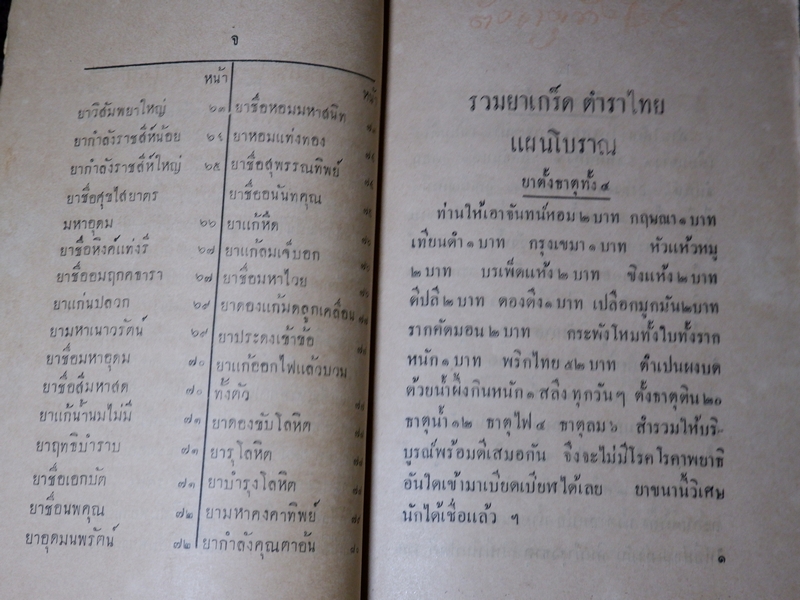 จ
หน้า
ยาวิสัมพยาใหญ่ ๖๓
ยากำลังราชสีห์น้อย ๖๔
ยากำลังราชสีห์ใหญ่ ๖๕
ยาชื่อศุขไสยาตร
มหาอุดม ๖๖
ยาชื่อหิงค์แท่งรี ๖๗
ยาชื่ออมฤกคธารา ๖๗
ยาแก่นปลวก ๖๙
ยามหาเนาวรัตน์ ๖๙
ยาชื่อมหาอุดม ๗๐
ยาชื่อสีมหาสด ๗๐
ยาแก้น้ำนมไม่มี ๗๑
ยาฤทธิบำราบ ๗๑
ยาชื่อเอกบัต ๗๑
ยาชื่อนพคุณ ๗๒
ยาอุดมนพรัตน์ ๗๒
หน้า
ยาชื่อหอมมหาสนิท
ยาหอมแท่งทอง
ยาชื่อสุพรรณทิพย์
ยาชื่ออนันทคุณ
ยาแก้หืด
ยาแก้ลมเจ็บอก
ยาชื่อมหาไวย
ยาดองแก้มดลูกเคลื่อน
ยาประดงเข้าข้อ
ยาแก้ออกไฟแล้วบวน
ทั้งตัว
ยาดองขับโลหิต
ยารุโลหิต
ยาบำรุงโลหิต
ยามหาคงคาทิพย์
ยากำลังคุณดาอัน
รวมยาเกร็ด ตำราไทย
แผนโบราณ
ยาตั้งธาตุทั้ง ๔
ท่านให้เอาจันทน์หอม ๒ บาท กฤษณา ๑ บาท
เทียนดำ ๑ บาท กรุงเขมา ๑ บาท หัวแห้วหมู
๒ บาท บรเพ็ดแห้ง ๒ บาท ขิงแห้ง ๒ บาท
ดีปลี ๒ บาท ดองดึง ๑ บาท เปลือกมูกมัน ๒ บาท
รากคัดมอน ๒ บาท กระพังโหมทั้งใบทั้งราก
หนัก ๑ บาท พริกไทย ๕๒ บาท ตำเปนผงบด
ด้วยน้ำผึ้งกินหนัก ๑ สลึง ทุกวัน ๆ ตั้งธาตุดิน ๒๐
ธาตุน้ำ ๑๒ ธาตุไฟ ๔ ธาตุลม ๖ สำรวมให้บริ-
บูรณ์พร้อมดีเสมอกัน จึงจะไม่มีโรคโรคาพยาธิ
อันใดเข้ามาเบียดเบียฬได้เลย ยาขนานี้วิเศษ
นักได้เชื่อแล้ว ฯ
๑